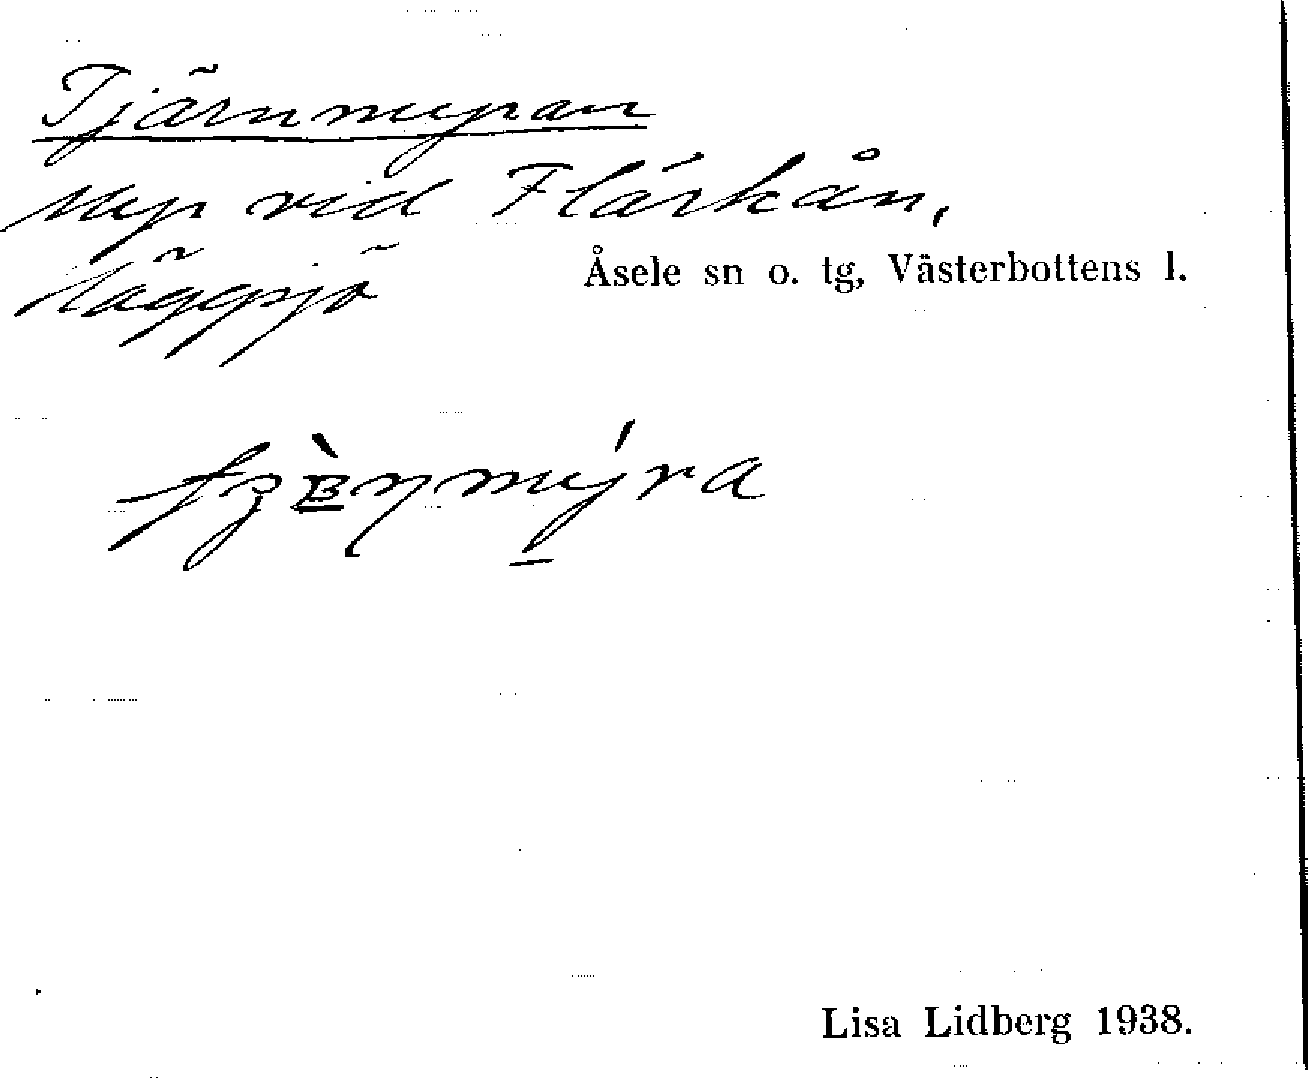 Tjärnmyran
Myr vid Flärkån,
Häggsjö
Åsele sn o. tg, Västerbottens l.
Lisa Lidberg 1938.